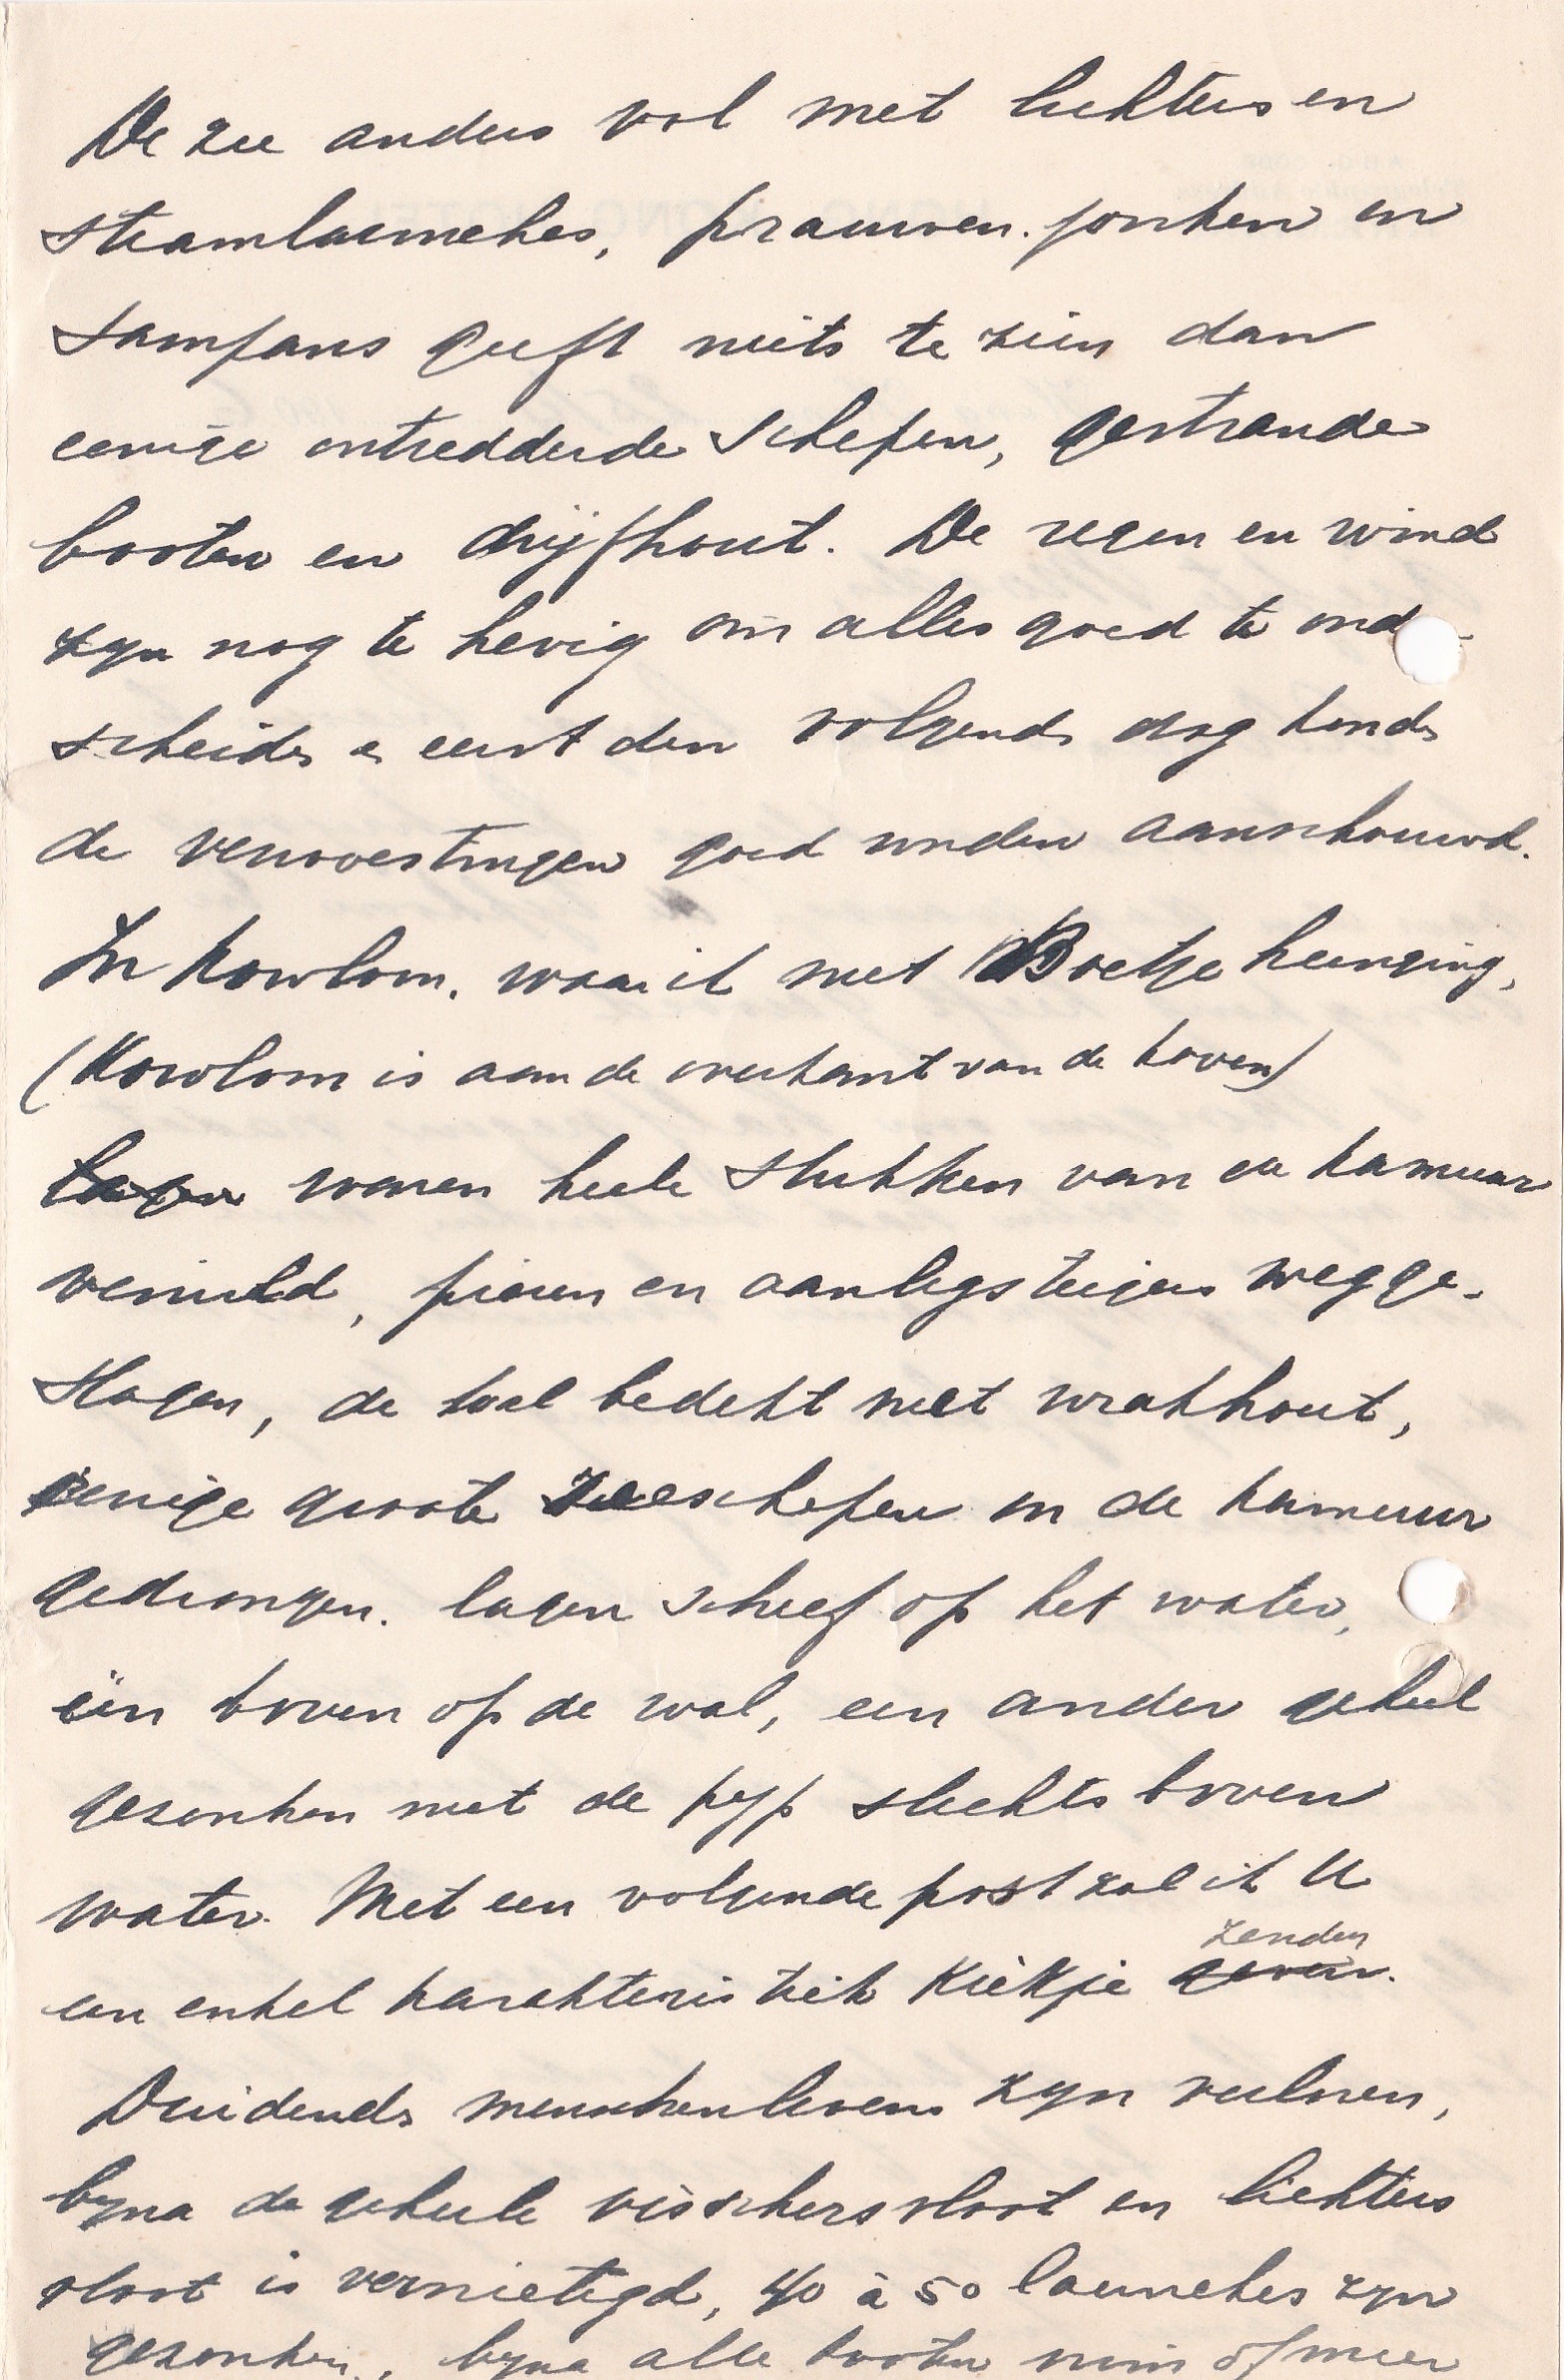 De zee anders vol met lichters en
steamlaunches, prauwen. jonken en
sampans geeft niets te zien dan
eenige ontredderde schepen, gestrande
booten en drijfhout. De regen en wind
zyn nog te hevig om alles goed te ond -
scheiden en eerst den volgenden dag konden
de verwoestingen goed worden aanschouwd.
In Kowloon. waar ik met Boetje heenging,
(Kowloon is aan de overkant van de haven)
lagen waren heele stukken van de kamuur
vernield, pieren en aanlegsteigers wegge-
slagen, de wal bedekt met wrakhout,
eenige groote zeeschepen in de kamuur
gedrongen. lagen scheef op het water,
één boven op de wal, een ander geheel
gezonken met de pyp slechts boven
water. Met een volgende post zal ik U
zenden
een enkel karakteristiek kiekje geven.
Duidends menschenlevens zyn verloren,
byna de geheele visschersvloot en lichters
vloot is vernietigd, 40 à 50 launches zyn
gezonken, byna alle booten min of meer